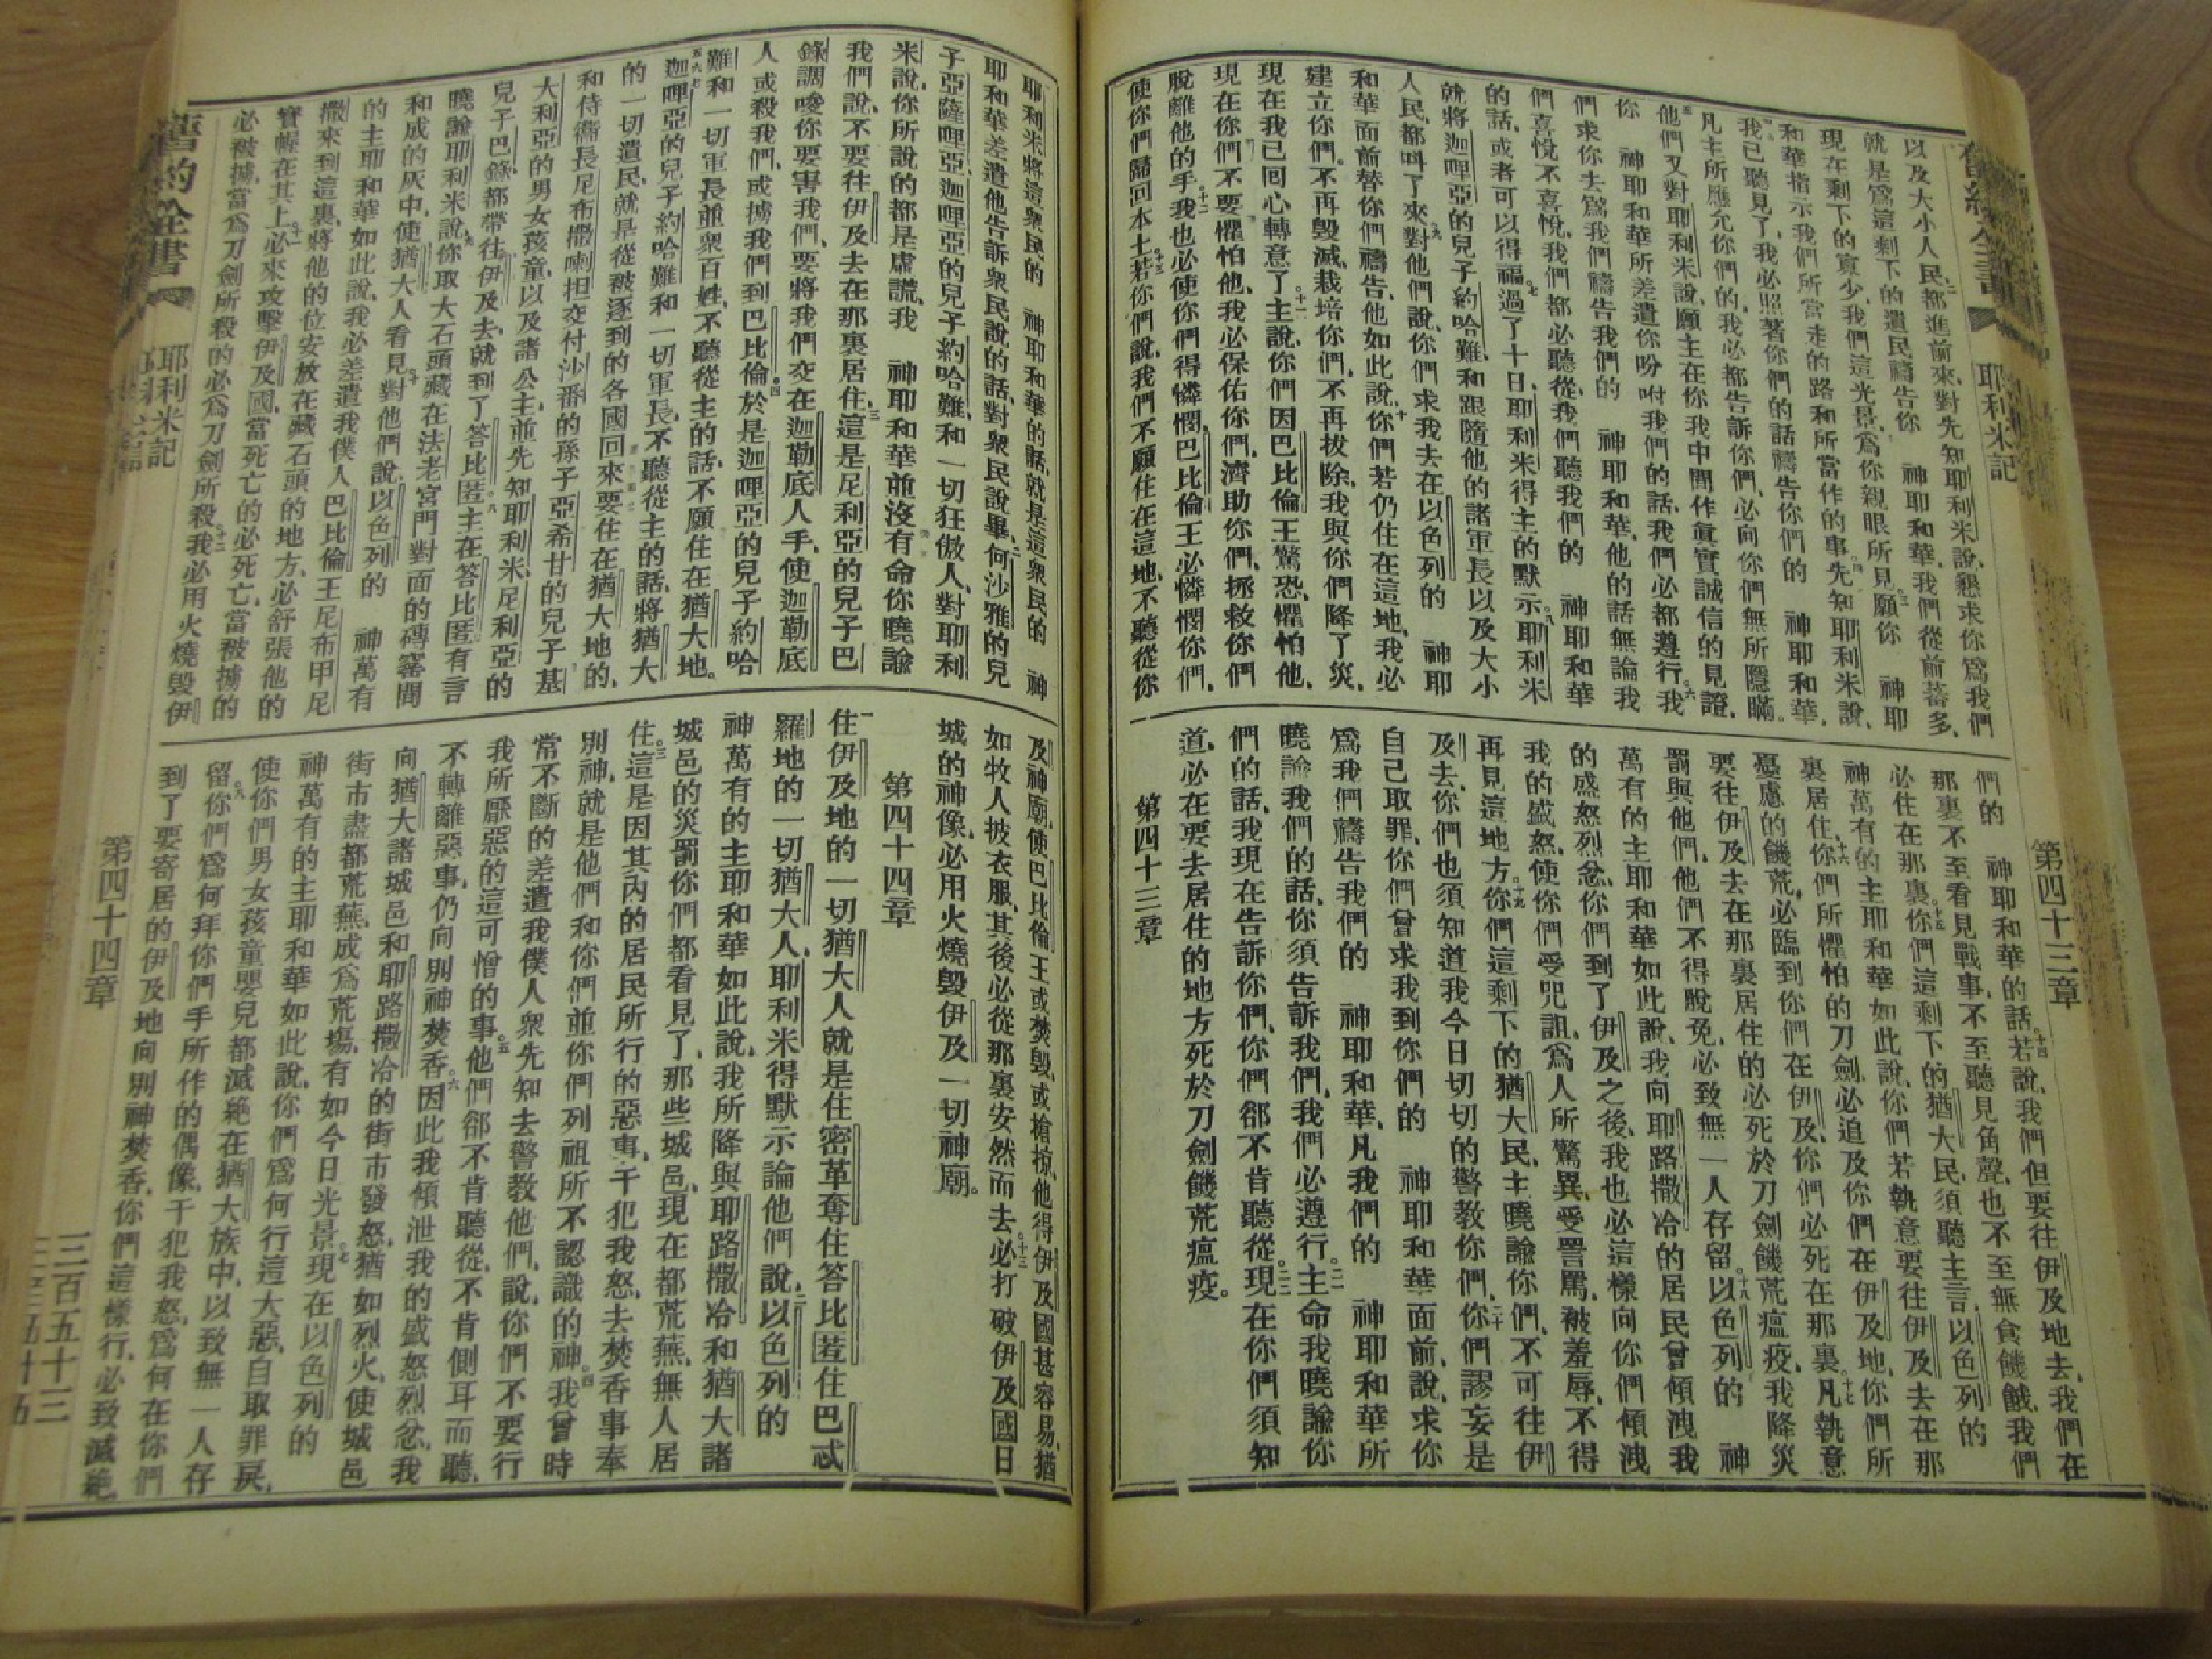 舊約全書
耶利米記
第四十三章
以及大小人民都進前來、二對先知耶利米說、懇求你爲我們
就是爲這剩下的遺民禱告你　神耶和華、我們從前蕃多、
現在剩下的寡少、我們這光景、爲你親眼所見。三願你　神耶
和華指示我們所當走的路和所當作的事。四先知耶利米說、
我已聽見了、我必照著你們的話禱告你們的　神耶和華、
凡主所應允你們的、我必都告訴你們、必向你們無所隱瞞。
五他們又對耶利米說、願主在你我中間作眞實誠信的見證、
你　神耶和華所差遣你吩咐我們的話、我們必都遵行。六我
們求你去爲我們禱告我們的　神耶和華、他的話無論我
們喜悅不喜悅、我們都必聽從、我們聽我們的　神耶和華
的話、或者可以得福。七過了十日、耶利米得主的默示。八耶利米
就將迦哩亞的兒子約哈難、和跟隨他的諸軍長以及大小
人民、都呌了來、九對他們說、你們求我去在以色列的　神耶
和華面前替你們禱告、他如此說、十你們若仍住在這地、我必
建立你們、不再毀滅、栽培你們、不再拔除、我與你們降了災、
現在我已回心轉意了。十一主說、你們因巴比倫王驚恐、懼怕他、
現在你們不要懼怕他、我必保佑你們、濟助你們、拯救你們
脫離他的手。十二我也必使你們得憐憫、巴比倫王必憐憫你們、
使你們歸回本土。十三若你們說、我們不願住在這地、不聽從你
們的　神耶和華的話。十四若說、我們但要往伊及地去、我們在
那裏不至看見戰事、不至聽見角聲、也不至無食饑餓、我們
必住在那裏。十五你們這剩下的猶大民、須聽主言、以色列的
神萬有的主耶和華如此說、你們若執意要往伊及去在那
裏居住、十六你們所懼怕的刀劍、必追及你們在伊及地、你們所
憂慮的饑荒、必臨到你們在伊及、你們必死在那裏。十七凡執意
要往伊及去在那裏居住的、必死於刀劍饑荒瘟疫、我降災
罰與他們、他們不得脫免、必致無一人存留。十八以色列的　神
萬有的主耶和華如此說、我向耶路撒冷的居民曾傾洩我
的盛怒烈忿、你們到了伊及之後、我也必這樣向你們傾洩
我的盛怒、使你們受咒詛、爲人所驚異、受詈罵、被羞辱、不得
再見這地方。十九你們這剩下的猶大民、主曉諭你們、不可往伊
及去、你們也須知道我今日切切的警敎你們、二十你們謬妄是
自己取罪、你們曾求我到你們的　神耶和華面前、說、求你
爲我們禱告我們的　神耶和華、凡我們的　神耶和華所
曉諭我們的話、你須告訴我們、我們必遵行。二一主命我曉諭你
們的話、我現在告訴你們、你們郤不肯聽從。二二現在你們須知
道、必在要去居住的地方死於刀劍饑荒瘟疫。
第四十三章
耶利米將這衆民的　神耶和華的話、就是這衆民的　神
耶和華差遣他告訴衆民說的話、對衆民說畢、二何沙雅的兒
子亞薩哩亞、迦哩亞的兒子約哈難、和一切狂傲人、對耶利
米說、你所說的都是虛謊、我　神耶和華並沒有命你曉諭
我們說、不要往伊及去在那裏居住、三這是尼利亞的兒子巴
錄調唆你要害我們、要將我們交在迦勒底人手、使迦勒底
人或殺我們、或擄我們到巴比倫。四於是迦哩亞的兒子約哈
難和一切軍長並衆百姓、不聽從主的話、不願住在猶大地。
五迦哩亞的兒子約哈難和一切軍長、不聽從主的話、將猶大
的一切遺民、就是從被逐到的各國回來要住在猶大地的、
六和侍衞長尼布撒喇担交付沙番的孫子亞希甘的兒子基
大利亞的男女孩童、以及諸公主、並先知耶利米、尼利亞的
兒子巴錄、都帶往伊及去、就到了答比匿。八主在答比匿有言
曉諭耶利米說、九你取大石頭藏在法老宮門對面的磚窰間
和成的灰中、使猶大人看見、十對他們說、以色列的　神萬有
的主耶和華如此說、我必差遣我僕人巴比倫王尼布甲尼
撒來到這裏、將他的位安放在藏石頭的地方、必舒張他的
寶幄在其上。十一必來攻擊伊及國、當死亡的必死亡、當被擄的
必被擄、當爲刀劍所殺的必爲刀劍所殺。十二我必用火燒毀伊
及神廟、使巴比倫王或焚毀、或搶掠、他得伊及國甚容易、猶
如牧人披衣服、其後必從那裏安然而去。十三必打破伊及國日
城的神像、必用火燒毀伊及一切神廟。
第四十四章
一住伊及地的一切猶大人、就是住密革奪住答比匿住巴忒
羅地的一切猶大人、耶利米得默示論他們說、二以色列的
神萬有的主耶和華如此說、我所降與耶路撒冷和猶大諸
城邑的災罰、你們都看見了、那些城邑、現在都荒蕪、無人居
住。三這是因其內的居民所行的惡事、干犯我怒、去焚香事奉
別神、就是他們和你們並你們列祖所不認識的神。四我曾時
常不斷的差遣我僕人衆先知去警敎他們、說、你們不要行
我所厭惡的這可憎的事。五他們郤不肯聽從、不肯側耳而聽、
不轉離惡事、仍向別神焚香。六因此我傾泄我的盛怒烈忿、我
向猶大諸城邑和耶路撒冷的街市發怒、猶如烈火、使城邑
街市盡都荒蕪、成爲荒塲、有如今日光景。七現在以色列的
神萬有的主耶和華如此說、你們爲何行這大惡、自取罪戾、
使你們男女孩童嬰兒都滅絕在猶大族中、以致無一人存
留。八你們爲何拜你們手所作的偶像、干犯我怒、爲何在你們
到了要寄居的伊及地向別神焚香、你們這樣行、必致滅絕
舊約全書
耶利米記
第四十四章
三百五十三